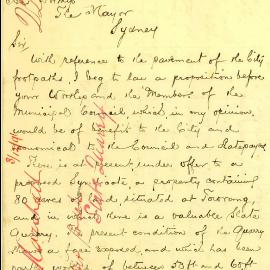 Worship
The Mayor
Sydney
Sir
With reference to the pavement of the City
footpaths, I beg to lay a proposition before
your Worship and the Members of the
Municipal Council which in my opinion
would be of benefit to the City and
economical to the Council and Ratepayers
There is at present under offer to a
proposed Syndicate a property containing
80 acres of land, situated at
and in which there is a valuable Slate
Quarry. present condition of the Quarry
shows a face exposed and which has been
worked of between 50ft and 60ft